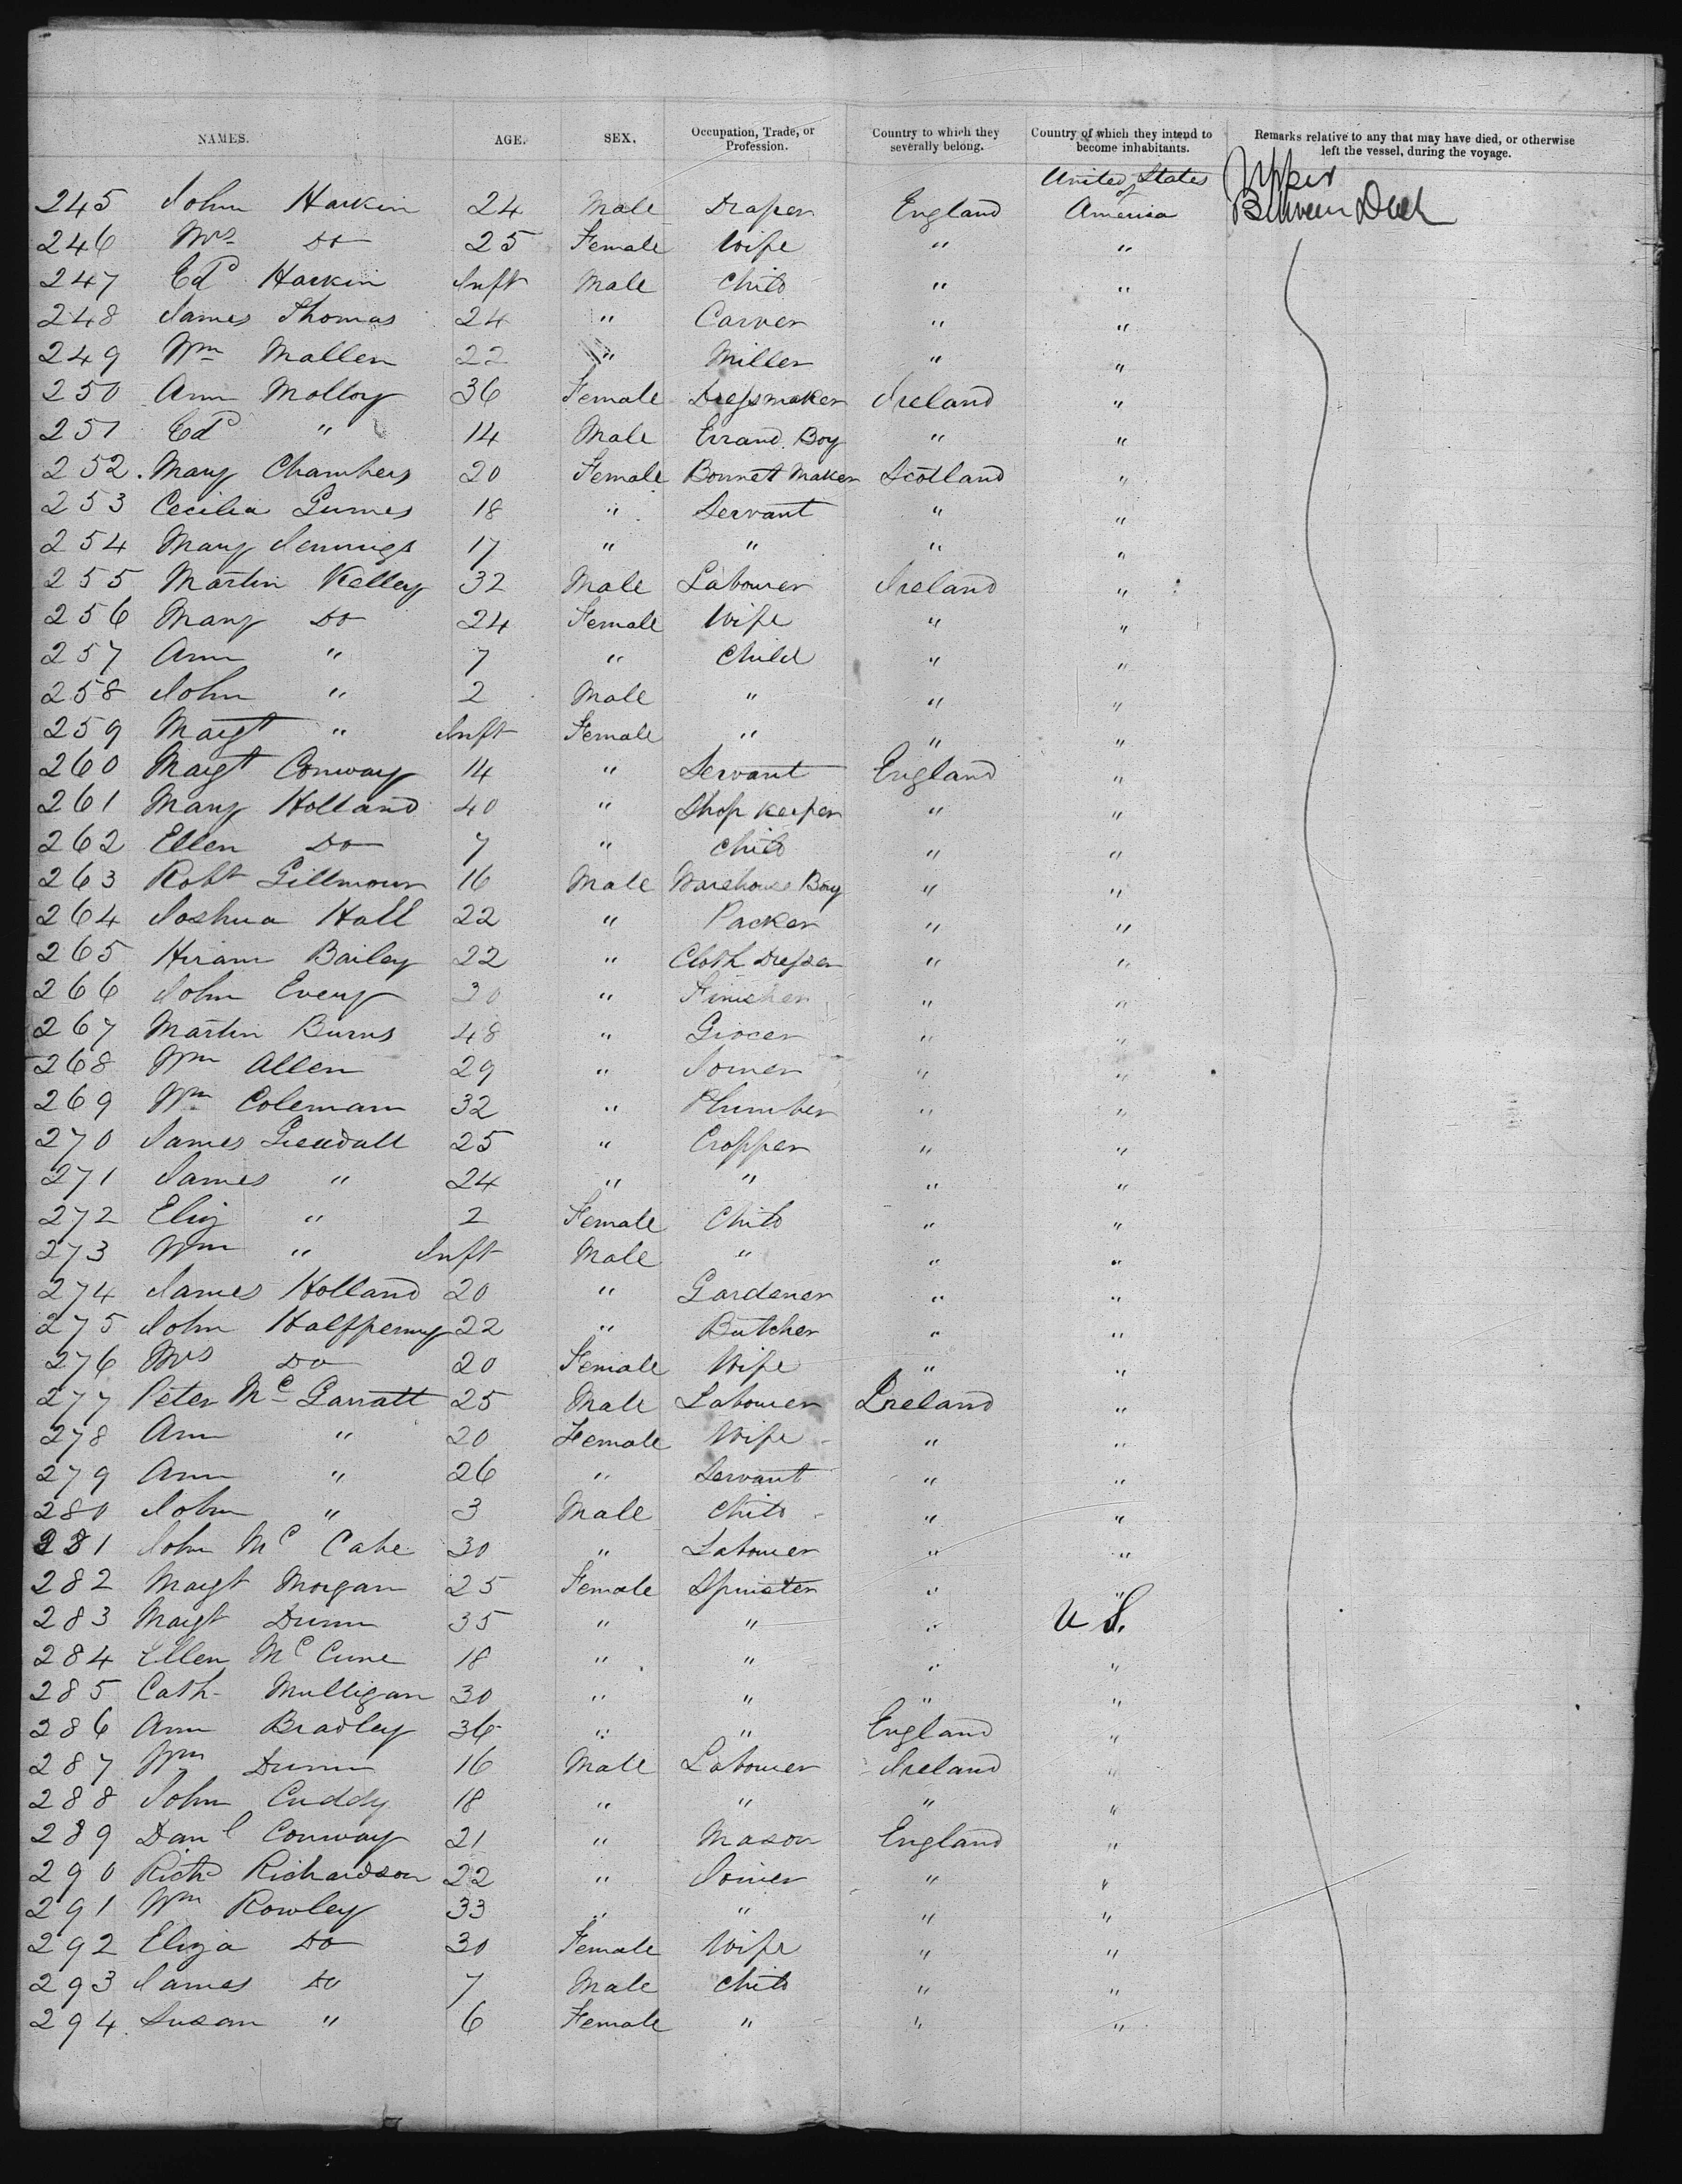 NAMES. AGE. SEX. Occupation, Trade, or Profession. Country to which they severally belong. Country of which they intend to become inhabitants. Remarks relative to any that may have died, or otherwise left the vessel, during the voyage.
245 John Harkin 24 Male Draper England United States of America Upper Between Deck
246 Mrs Do 25 Female Wife " "
247 Ed Harkin Inft Male Child " "
248 James Thomas 24 " Carver " "
249 Wm Mallen 22 " Miller " "
250 Ann Molloy 36 Female Dressmaker Ireland "
251 Ed " 14 Male Errand Boy " "
252. Mary Chambers 20 Female Bonnet Maker Scotland "
253 Cecilia 18 " Servant " "
254 Mary Jennings 17 " " " "
255 Martin Kelley 32 Male Labourer Ireland "
256 Mary Do 24 Female Wife " "
257 Ann " 7 " Child " "
258 John " 2 Male " " "
259 Margt " Inft Female " " "
260 Margt Conway 14 " Servant England "
261 Mary Holland 40 " Shop Keeper " "
262 Ellen Do 7 " Child " "
263 Robt Gillmour 16 Male Warehouse Boy " "
264 Joshua Hall 22 " Packer " "
265 Hiram Bailey 22 " Cloth Dresser " "
266 John Every 30 " Finisher " "
267 Martin Burns 48 " Grocer " "
268 Wm Allen 29 " Joiner " "
269 Wm Coleman 32 " Plumber " "
270 James 25 " Cropper " "
271 James " 24 " " " "
272 Eliz " 2 Female Child " "
273 Wm " Inft Male " " "
274 James Holland 20 " Gardener " "
275 John Halfpenny 22 " Butcher " "
276 Mrs Do 20 Female Wife " "
277 Peter Mc Garratt 25 Male Labourer Ireland "
278 Ann " 20 Female Wife " "
279 Ann " 26 " Servant " "
280 John " 3 Male Child " "
281 John Mc Cabe 30 " Labourer " "
282 Margt Morgan 25 Female Spinster " "
283 Margt Dunn 35 " " " U S.
284 Ellen Mc Cune 18 " " " "
285 Cath Mulligan 30 " " " "
286 Ann Bradley 36 " " England "
287 Wm Dunn 16 Male Labourer Ireland "
288 John Cuddy 18 " " " "
289 Danl Conway 21 " Mason England "
290 Richd Richardson 22 " Joiner " "
291 Wm Rowley 33 " " " "
292 Eliza Do 30 Female Wife " "
293 James Do 7 Male Child " "
294 Susan " 6 Female " " "